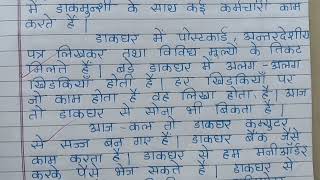 में डाकमुन्शी के साथ कई कर्मचारी काम
करते है ।
डाकघर में पोस्टकार्ड, अन्तरदेशीय
पत्र लिखकर तथा विविध मूल्यो के तिकट
मिलते है । बड़े डाकघर में अलग-अलग
खिडकियाँ होती है । हर खिडकियाँ पर
जो काम होता है वह लिखा होता है । आज
तो डाकघर से सोना भी बिकता है ।
आज-कल तो डाकघर कम्प्युटर
से सज्ज बन गए है । डाकघर बैंक जैसे
काम करता है । डाकघर से हम मनीऑर्डर
करके पैसे भेज सकते है । डाकघर से